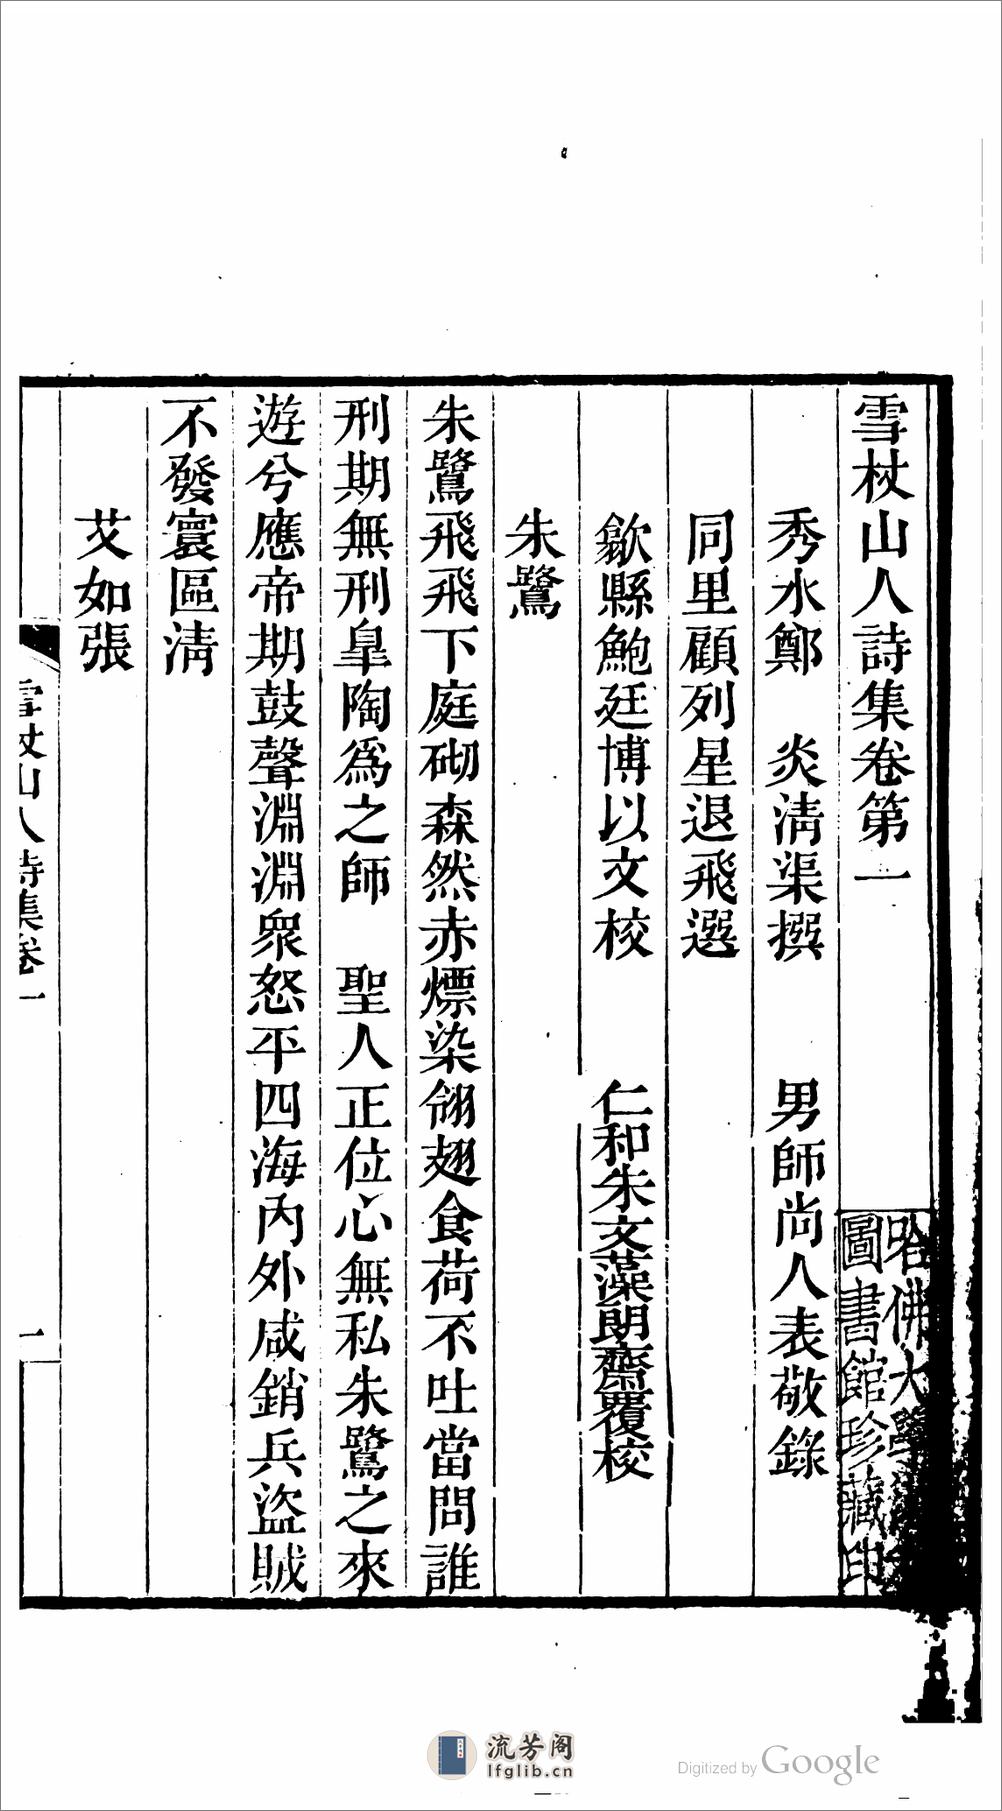 雪杖山人詩集卷第一
秀水鄭　炎清渠撰　　男師尚人表敬錄
同里顧列星退飛選
歙縣鮑廷博以文校　　仁和朱文藻朗齋覆校
朱鷺
朱鷺飛飛下庭砌森然赤熛染翎翅食荷不吐當問誰
刑期無刑皐陶爲之師　聖人正位心無私朱鷺之來
遊兮應帝期鼓聲淵淵衆怒平四海內外咸銷兵盜賊
不發寰區清
艾如張
雪杖山人詩集卷一
一
哈佛大學
圖書館珍藏印
流芳阁
lfglib.cn
Digitized by Google